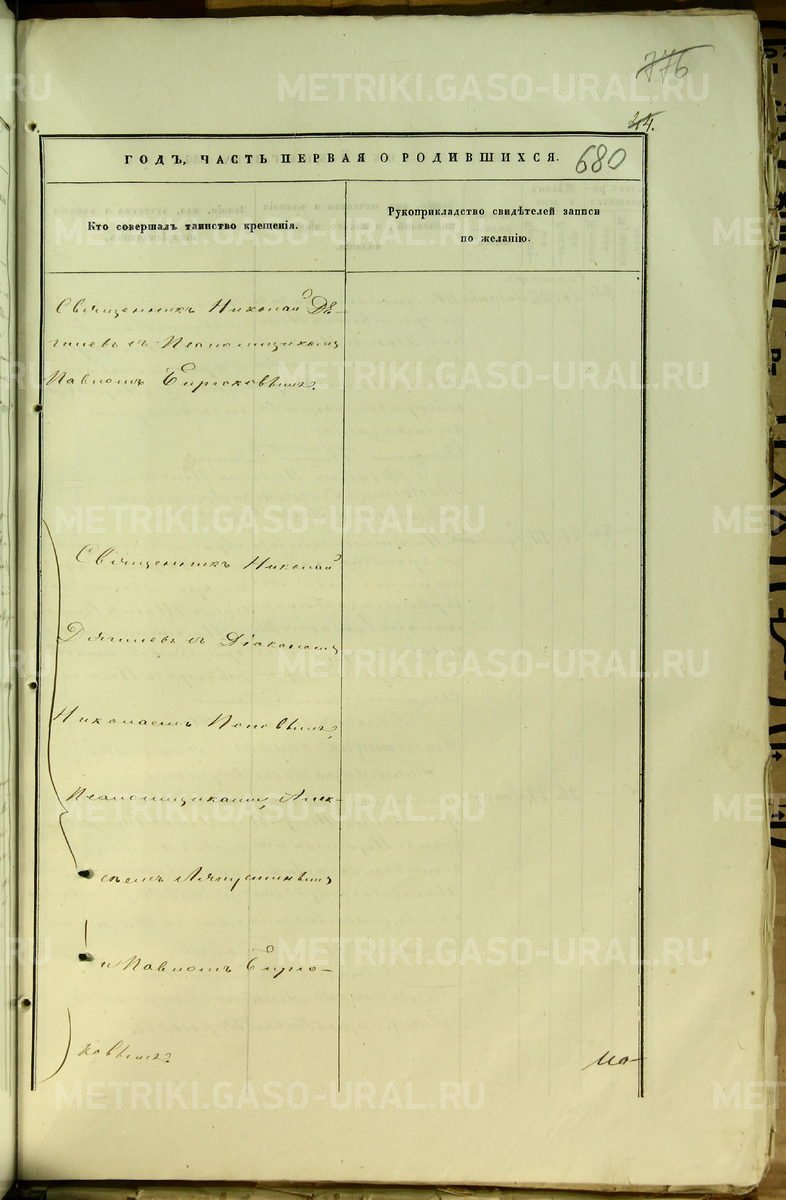 776
44.
ГОДЪ, ЧАСТЬ ПЕРВАЯ О РОДИВШИХСЯ.
680
Кто совершалъ таинство крещенія.
Рукоприкладство свидѣтелей записи
по желанію.
Священникъ Николай Дя-
гилевъ съ Псаломщикомъ
Павломъ Бирюковымъ.
Священникъ Николай
Дягилевъ съ Діакономъ
Николаемъ Поповымъ,
Псаломщиками, Алек-
сѣемъ Ляпустинымъ
и Павломъ Бирю-
ковымъ.
METRIKI.GASO-URAL.RU